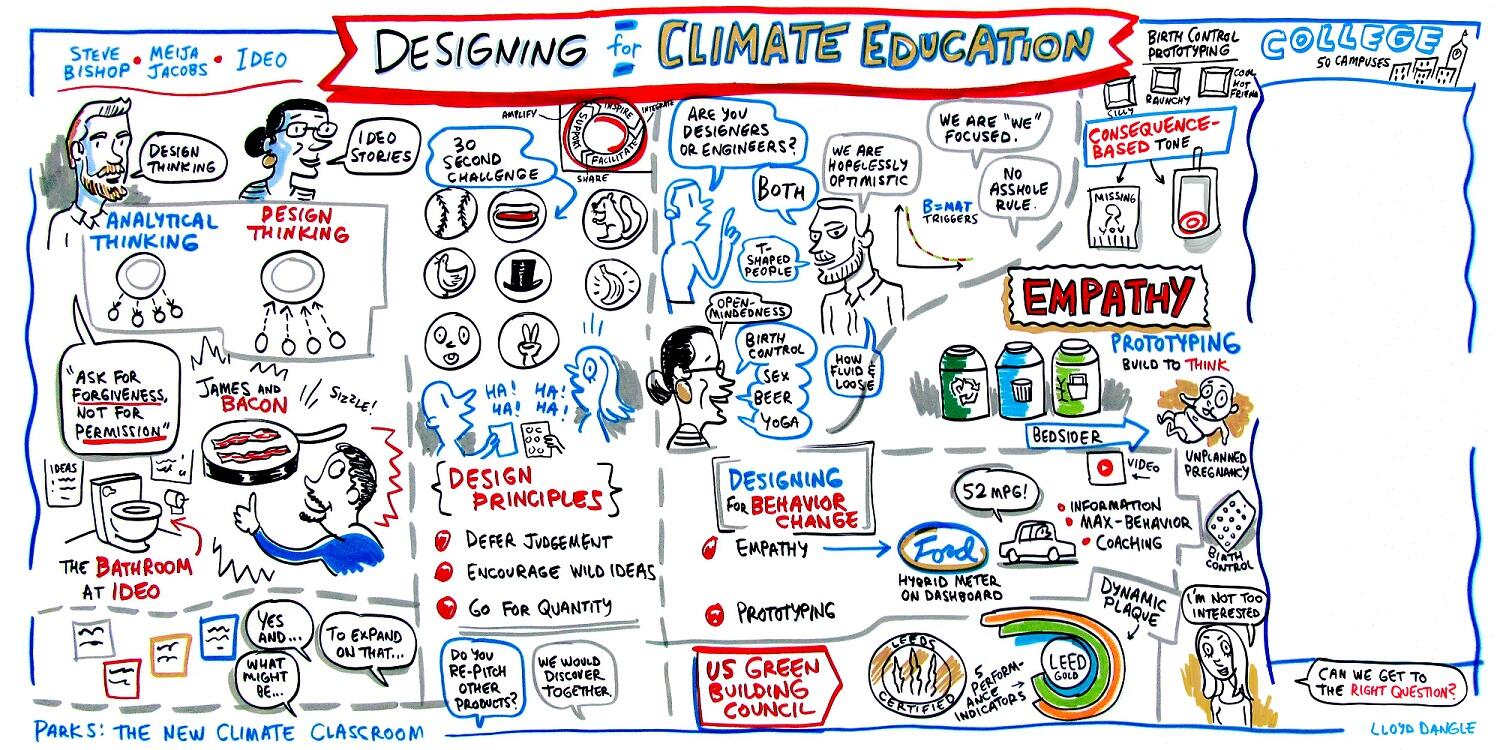 DESIGNING for CLIMATE EDUCATION
STEVE BISHOP • MEIJA JACOBS • IDEO
DESIGN
THINKING
IDEO
STORIES
ANALYTICAL
THINKING
DESIGN
THINKING
"ASK FOR
FORGIVENESS,
NOT FOR
PERMISSION"
JAMES AND
BACON
SIZZLE!
IDEAS
THE BATHROOM
AT IDEO
YES
AND...
WHAT
MIGHT
BE...
TO EXPAND
ON THAT...
PARKS: THE NEW CLIMATE CLASSROOM
30
SECOND
CHALLENGE
AMPLIFY
INSPIRE
INTEGRATE
SUPPORT
FACILITATE
SHARE
HA! HA!
HA! HA!
DESIGN
PRINCIPLES
DEFER JUDGEMENT
ENCOURAGE WILD IDEAS
GO FOR QUANTITY
DO YOU
RE-PITCH
OTHER
PRODUCTS?
WE WOULD
DISCOVER
TOGETHER.
ARE YOU
DESIGNERS
OR ENGINEERS?
BOTH
T-
SHAPED
PEOPLE
WE ARE
HOPELESSLY
OPTIMISTIC
WE ARE "WE"
FOCUSED.
NO
ASSHOLE
RULE.
B=MAT
TRIGGERS
OPEN-
MINDEDNESS
BIRTH
CONTROL
SEX
BEER
YOGA
HOW
FLUID &
LOOSE
DESIGNING
FOR BEHAVIOR
CHANGE
EMPATHY
PROTOTYPING
Ford
HYBRID METER
ON DASHBOARD
52 MPG!
VIDEO
• INFORMATION
• MAX-BEHAVIOR
• COACHING
US GREEN
BUILDING
COUNCIL
LEEDS
CERTIFIED
5
PERFORM-
ANCE
INDICATORS
LEED
GOLD
DYNAMIC
PLAQUE
BIRTH CONTROL
PROTOTYPING
SILLY
RAUNCHY
COOL
HOT
FRIEND
CONSEQUENCE-
BASED TONE
MISSING
YOU
EMPATHY
PROTOTYPING
BUILD TO THINK
BEDSIDER
UNPLANNED
PREGNANCY
BIRTH
CONTROL
I'M NOT TOO
INTERESTED
COLLEGE
50 CAMPUSES
CAN WE GET TO
THE RIGHT QUESTION?
LLOYD DANGLE